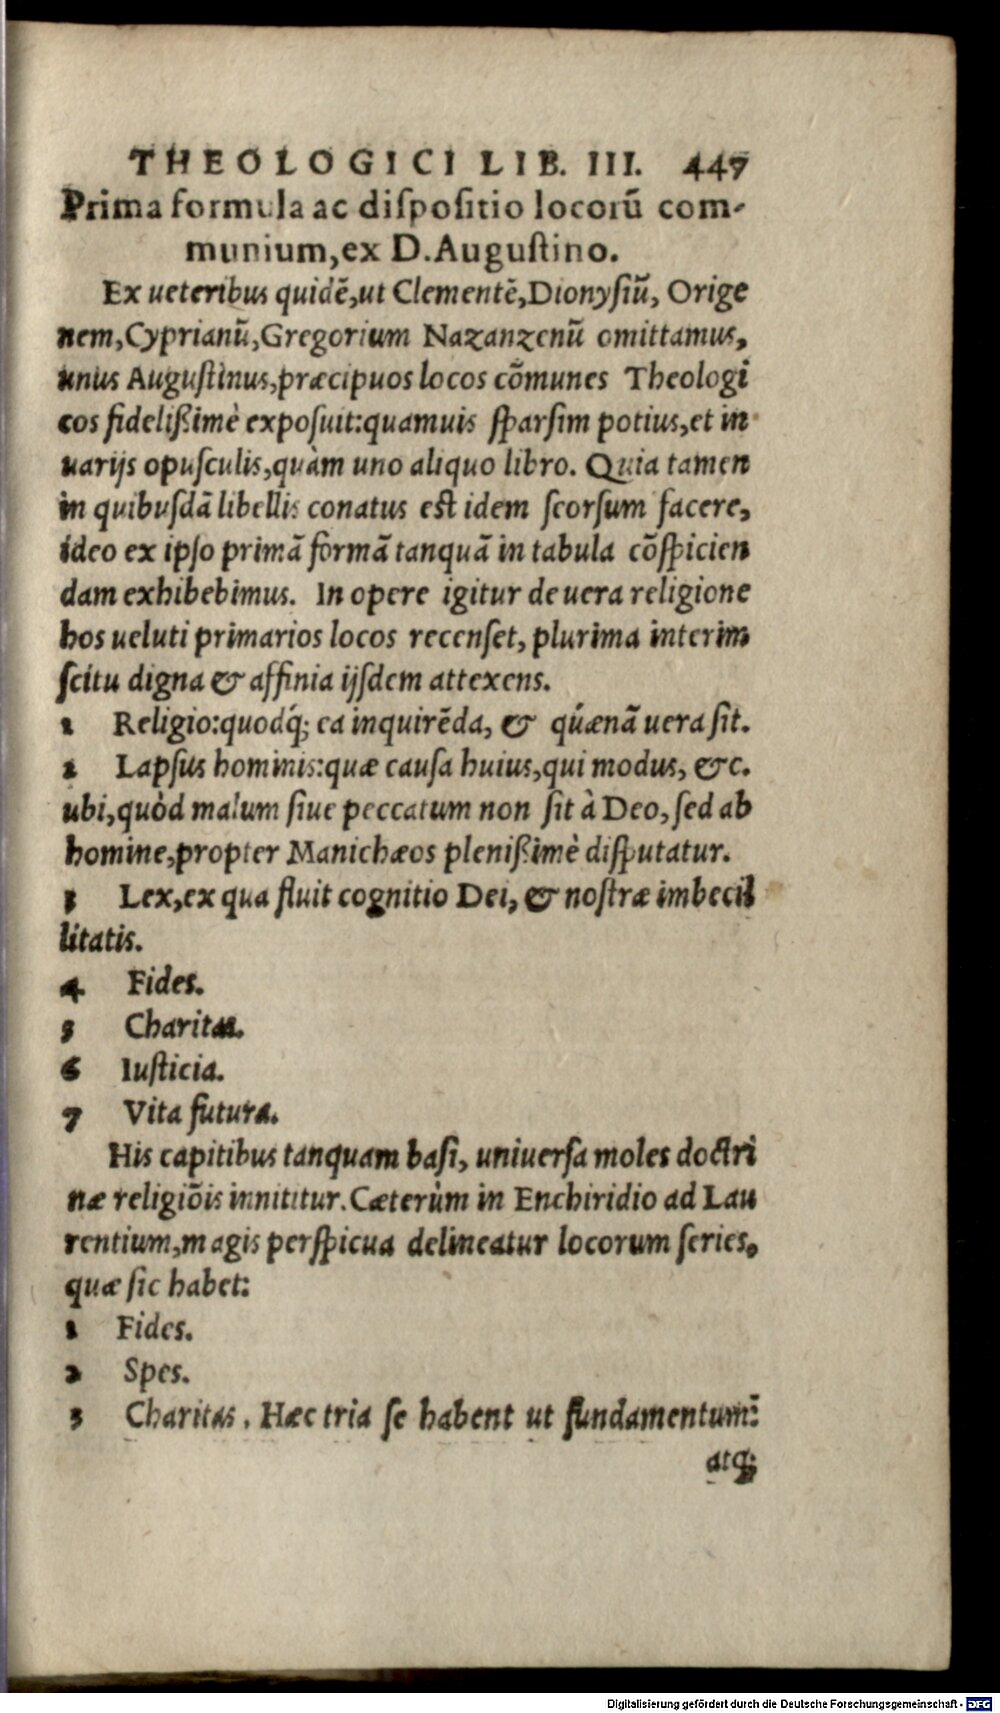 THEOLOGICI LIB. III. 447
Prima formula ac diſpoſitio locorū com-
munium, ex D. Auguſtino.
Ex ueteribus quidē, ut Clementē, Dionyſiū, Orige
nem, Cyprianū, Gregorium Nazanzenū omittamus,
unus Auguſtinus, præcipuos locos cōmunes Theologi
cos fidelißimè expoſuit: quamuis ſparſim potius, et in
uarijs opuſculis, quàm uno aliquo libro. Quia tamen
in quibuſdā libellis conatus eſt idem ſeorſum facere,
ideo ex ipſo primā formā tanquā in tabula cōſpicien
dam exhibebimus. In opere igitur de uera religione
hos ueluti primarios locos recenſet, plurima interim
ſcitu digna & affinia ijſdem attexens.
1 Religio: quodq́; ea inquirēda, & quǽnā uera ſit.
2 Lapſus hominis: quæ cauſa huius, qui modus, &c.
ubi, quòd malum ſiue peccatum non ſit à Deo, ſed ab
homine, propter Manichæos plenißimè diſputatur.
3 Lex, ex qua fluit cognitio Dei, & noſtræ imbecil
litatis.
4 Fides.
5 Charitas.
6 Iuſticia.
7 Vita futura.
His capitibus tanquam baſi, uniuerſa moles doctri
næ religiōis innititur. Cæterùm in Enchiridio ad Lau
rentium, magis perſpicua delineatur locorum ſeries,
quæ ſic habet:
1 Fides.
2 Spes.
3 Charitas. Hæc tria ſe habent ut fundamentum:
atq;
Digitalisierung gefördert durch die Deutsche Forschungsgemeinschaft - DFG